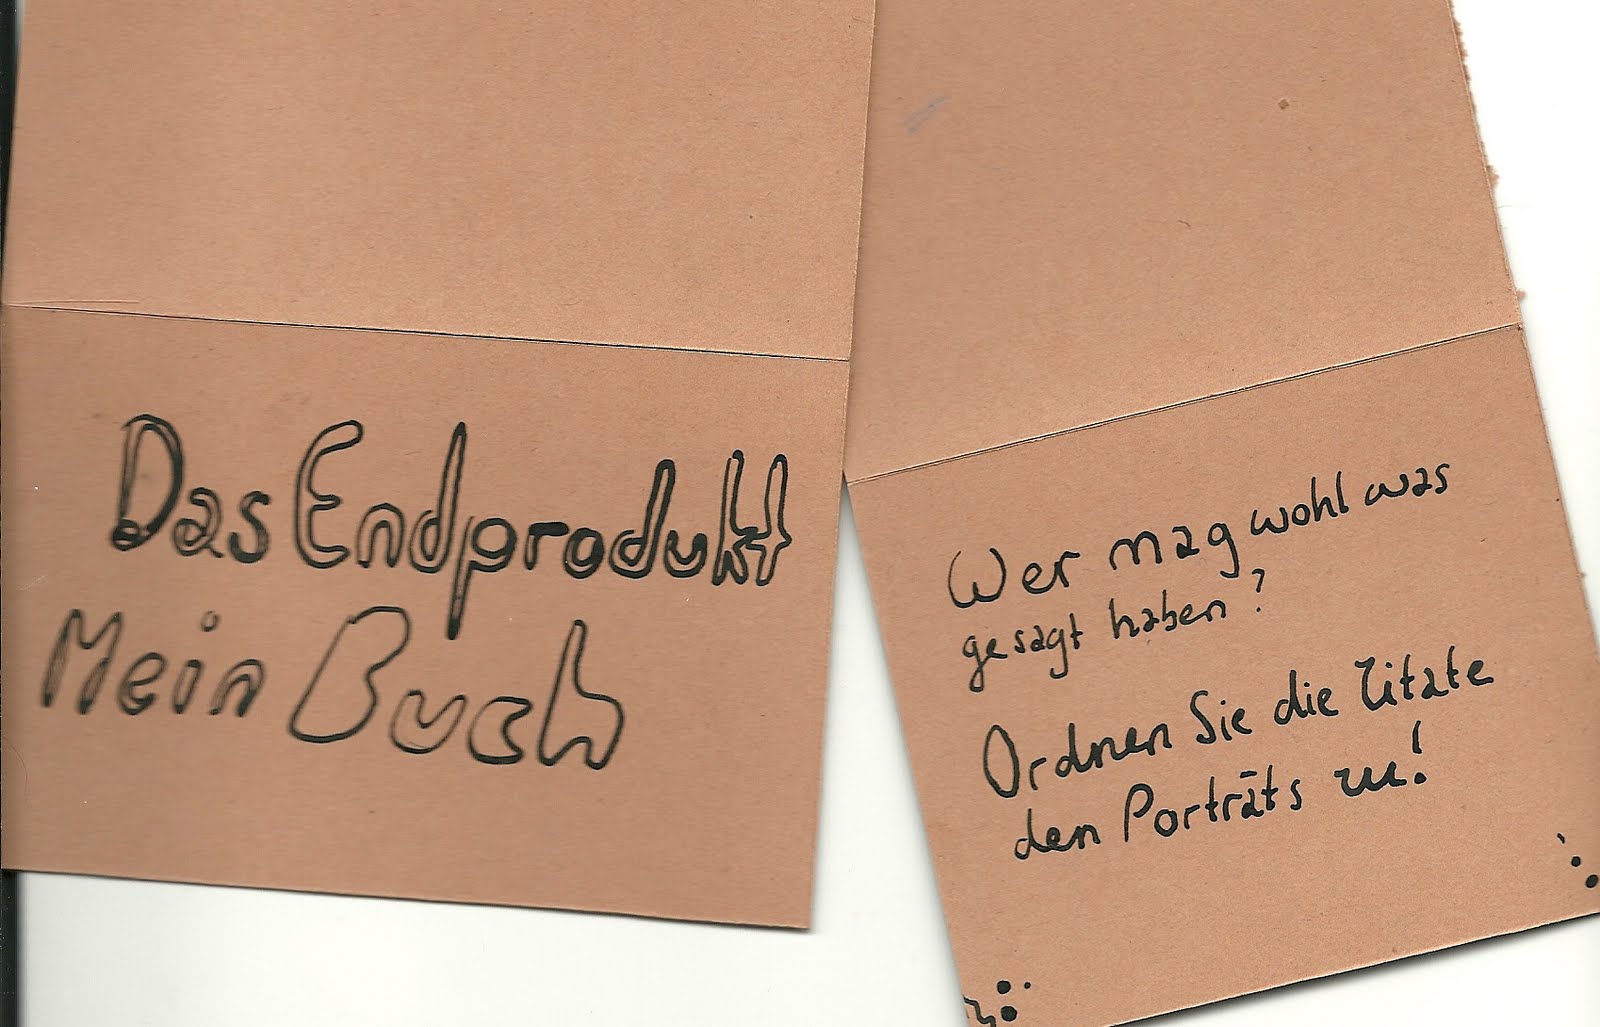 Das Endprodukt
Mein Buch
Wer mag wohl was
gesagt haben?
Ordnen Sie die Zitate
den Porträts zu!